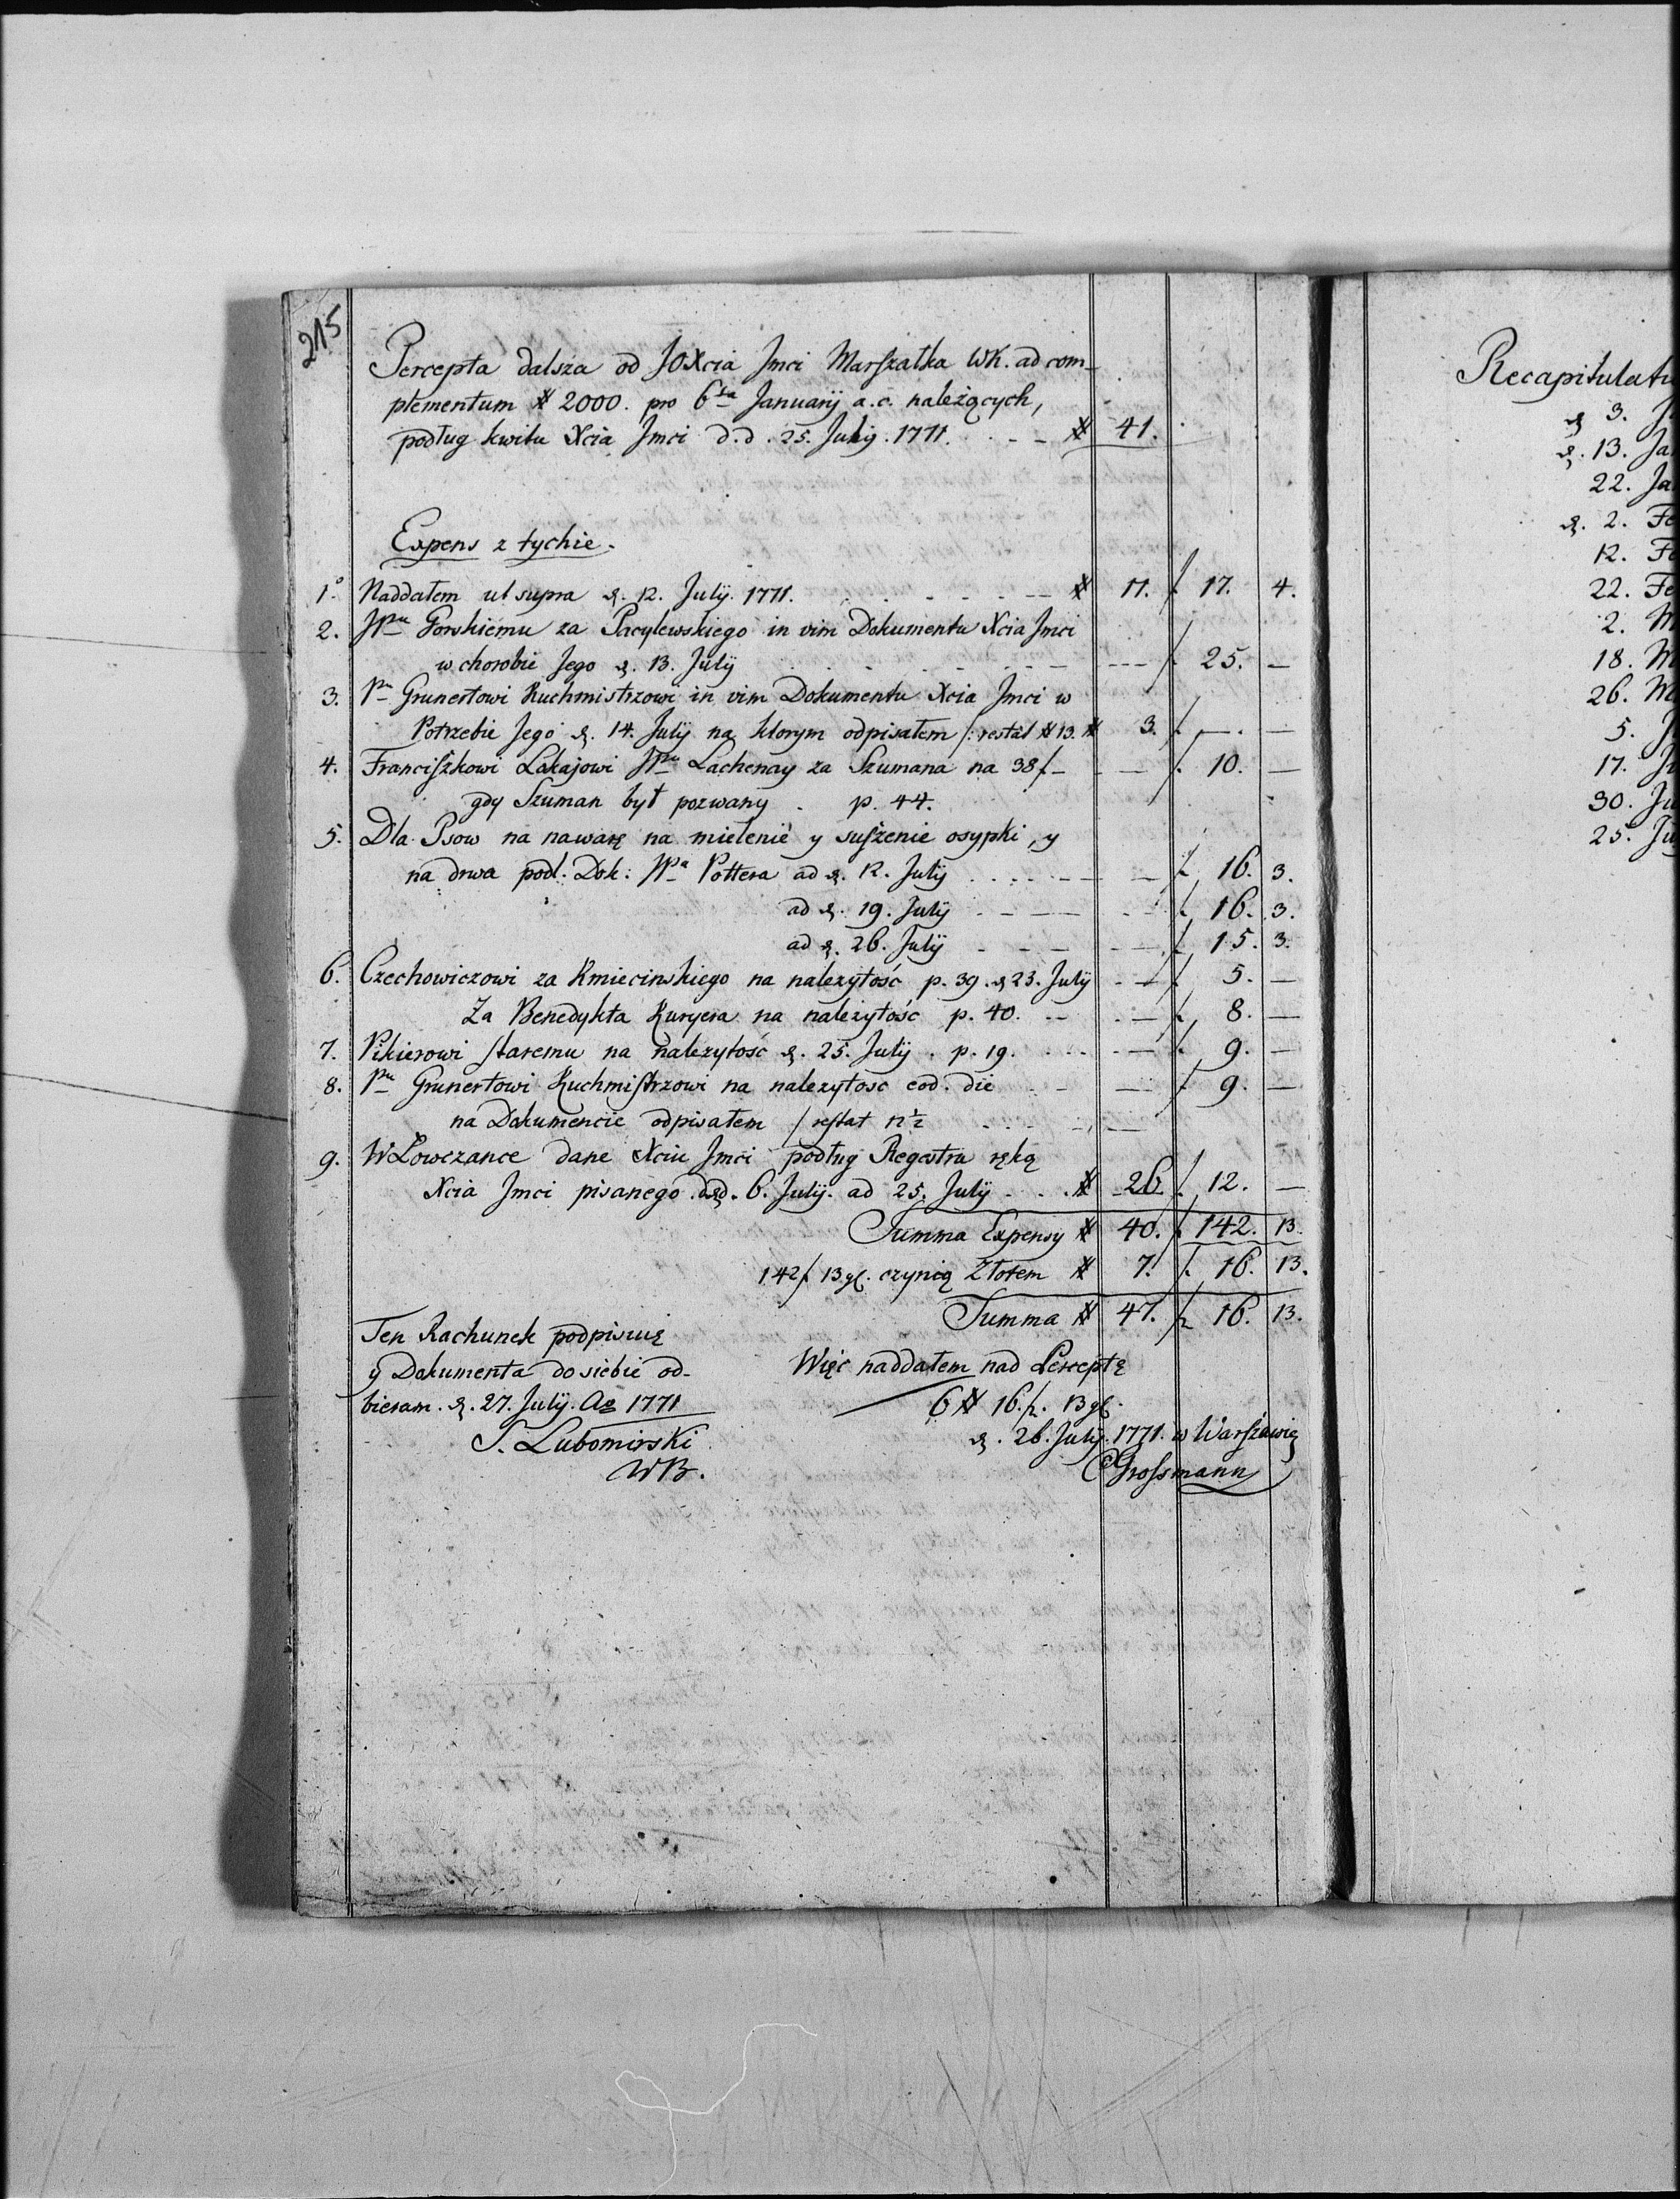 215
Percepta dalsza od JOXcia Jmci Marszałka WK. ad com-
plementum # 2000. pro 6ta Januarij a.c. należących,
podług kwitu Xcia Jmci d.d. 25. July. 1771. . - - # 41.
Expens z tychże.
1° Naddałem ut supra d. 12. July. 1771. . . - - - - # 11. f. 17. 4.
2. JPu Gorskiemu za Pacylewskiego in vim Dokumentu Xcia Jmci
w chorobie Jego d. 13. July . . . - - - - --- f. 25. —
3. Pu Grunertowi Kuchmistrzowi in vim Dokumentu Xcia Jmci w
Potrzebie Jego d. 14. July na ktorym odpisałem /: restat # 13. # 3. f. —. —
4. Franciszkowi Lokajowi JPu Lachenay za Szumana na 38 f - - — f. 10. —
gdy Szuman był pozwany . p. 44.
5. Dla Psow na nawarę na mielenie y suszenie osypki, y
na drwa podł. Dok: JPa Pottera ad d. 12. July . . . - - - — f. 16. 3.
ad d. 19. July - - — - - f. 16. 3.
ad d. 26. July - - - - - f. 15. 3.
6. Czechowiczowi za Kmiecinskiego na należytość p. 39. d 23. July - - f. 5. —
Za Benedykta Kuryera na należytość p. 40. -- . — f. 8. —
7. Pikierowi staremu na należytość d. 25. July . p. 19. . . . . — f. 9. —
8. Pu Grunertowi Kuchmistrzowi na należytosc eod. die - - — f. 9. —
na Dokumencie odpisałem / restat 12½ - . . - . —
9. W Łowczance dane Xciu Jmci podług Regestru ręką
Xcia Jmci pisanego . d. d. 6. July. ad 25. July - . . # 26. f. 12. —
Summa Expensy # 40. f. 142. 13.
142 f 13 gl. czynią Złotem # 7. f. 16. 13.
Summa # 47. f. 16. 13.
Ten Rachunek podpisuię
y Dokumenta do siebie od-
bieram. d. 27. July. Ao 1771
S. Lubomirski
Więc naddałem nad Perceptę
6 # 16. f. 13 gl.
d. 26. July. 1771. w Warszawie
Grossmann
Recapitulati
d 3. J
d. 13. Ja
22. Ja
d. 2. Fe
12. Fe
22. Fe
2. M
18. M
26. Ma
5. J
17. J
30. Ju
25. Ju